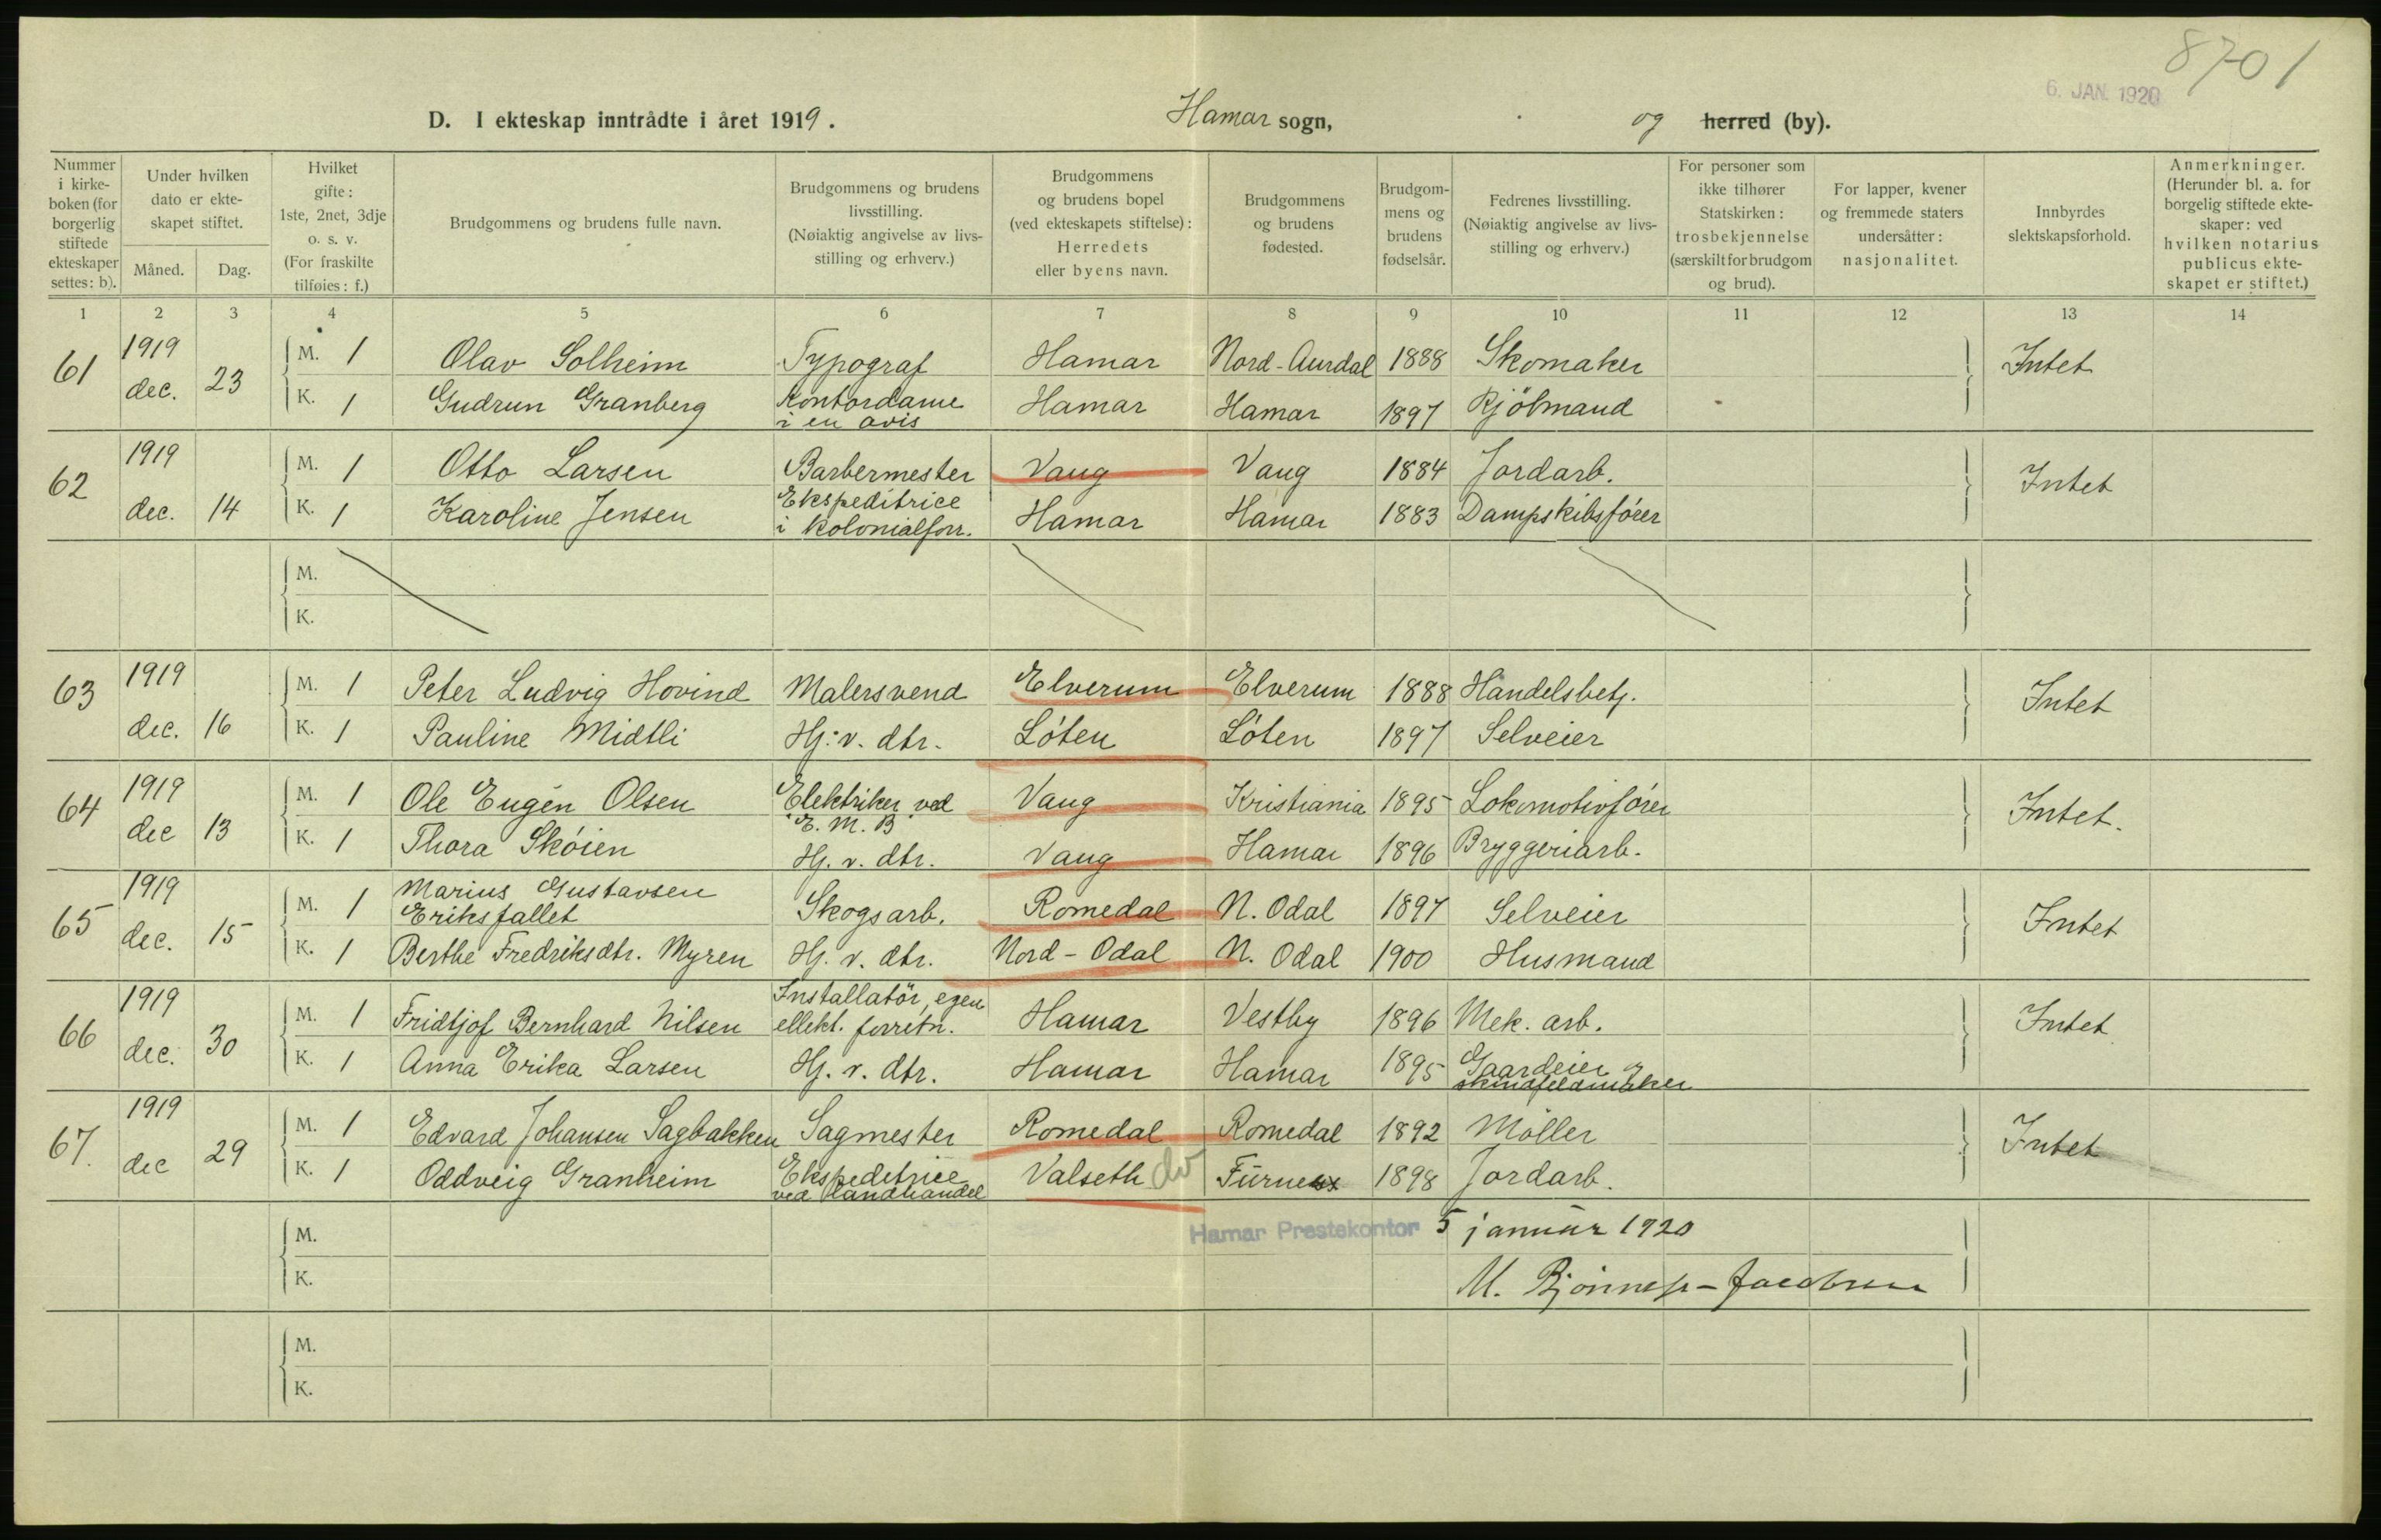 8701
6. JAN. 1920
D. I ekteskap inntrådte i året 1919. Hamar sogn, og herred (by).
Nummer i kirke-boken (for borgerlig stiftede ekteskaper settes: b).
Under hvilken dato er ekte-skapet stiftet.
Måned. Dag.
Hvilket gifte: 1ste, 2net, 3dje o. s. v. (For fraskilte tilføies: f.)
Brudgommens og brudens fulle navn.
Brudgommens og brudens livsstilling. (Nøiaktig angivelse av livs-stilling og erhverv.)
Brudgommens og brudens bopel (ved ekteskapets stiftelse): Herredets eller byens navn.
Brudgommens og brudens fødested.
Brudgom-mens og brudens fødselsår.
Fedrenes livsstilling. (Nøiaktig angivelse av livs-stilling og erhverv.)
For personer som ikke tilhører Statskirken: trosbekjennelse (særskilt for brudgom og brud).
For lapper, kvener og fremmede staters undersåtter: nasjonalitet.
Innbyrdes slektskapsforhold.
Anmerkninger. (Herunder bl. a. for borgelig stiftede ekte-skaper: ved hvilken notarius publicus ekte-skapet er stiftet.)
1 2 3 4 5 6 7 8 9 10 11 12 13 14
61 1919 dec. 23 M. 1 Olav Solheim Typograf Hamar Nord-Aurdal 1888 Skomaker Intet
K. 1 Gudrun Granberg Kontordame i en avis Hamar Hamar 1897 Kjöbmand
62 1919 dec. 14 M. 1 Otto Larsen Barbermester Vang Vang 1884 Jordarb. Intet
K. 1 Karoline Jensen Ekspeditrice i kolonialforr. Hamar Hamar 1883 Dampskibsfører
M.
K.
63 1919 dec. 16 M. 1 Peter Ludvig Hovind Malersvend Elverum Elverum 1888 Handelsbetj. Intet
K. 1 Pauline Midtli Hj. v. dtr. Löten Löten 1897 Selveier
64 1919 dec 13 M. 1 Ole Eugén Olsen Elektriker ved E. M. B Vang Kristiania 1895 Lokomotivfører Intet.
K. 1 Thora Skøien Hj. v. dtr. Vang Hamar 1896 Bryggeriarb.
65 1919 dec. 15 M. 1 Marius Gustavsen Eriksfallet Skogsarb. Romedal N. Odal 1897 Selveier Intet
K. 1 Berthe Fredriksdtr. Myren Hj. v. dtr. Nord-Odal N. Odal 1900 Husmand
66 1919 dec. 30 M. 1 Fridtjof Bernhard Nilsen Installatör, egen ellekt. forretn. Hamar Vestby 1896 Mek. arb. Intet
K. 1 Anna Erika Larsen Hj. v. dtr. Hamar Hamar 1895 Gaardeier og skindfeldmaker
67. 1919 dec 29 M. 1 Edvard Johansen Sagbakken Sagmester Romedal Romedal 1892 Möller Intet
K. 1 Oddveig Granheim Ekspeditrice ved Landhandel Valseth do Furnes 1898 Jordarb.
M. Hamar Prestekontor 5 januar 1920
K. M. Bjønness-Jacobsen
M.
K.